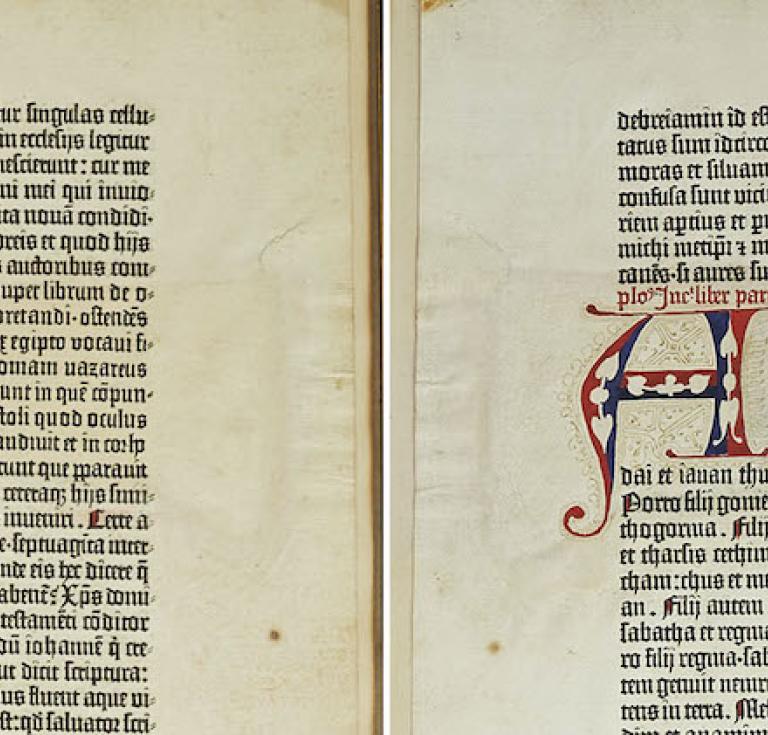 ur singulas cellu-
in ecclesijs legitur
nescierunt: cur me
ni mei qui inuio-
ita nouā condidi-
breis et quod hijs
auctoribus com-
uper librum de o-
pretandi·ostendēs
egipto vocaui fi-
oniam nazareus
unt in quē cōpun-
stoli quod oculus
audiuit et in cor ho-
cunt que ꝓparauit
ceteraqꝫ hijs simi-
inueniri. Certe a-
e·septuagīta inter-
nde eis hec dicere q̄
abent? Xp̄s domi-
testamēti cōditor
dū iohannē q̇ cre-
ut dicit scriptura:
us fluent aque vi-
st:qd̄ saluator scri-
debreiamin id est
tatus sum idcirco
moras et siluam
confusa sunt vici
riem aptius et p
michi metip̄i ⁊ m
canēs·si aures su
Inc't liber par
A
dai et iauan thu
Porro filij gome
thogorma. Filij
et tharsis cethim
cham:chus et m
an. Filij autem
sabatha et regma
ro filij regma·sab
tem genuit nemr
tens in terra. Me